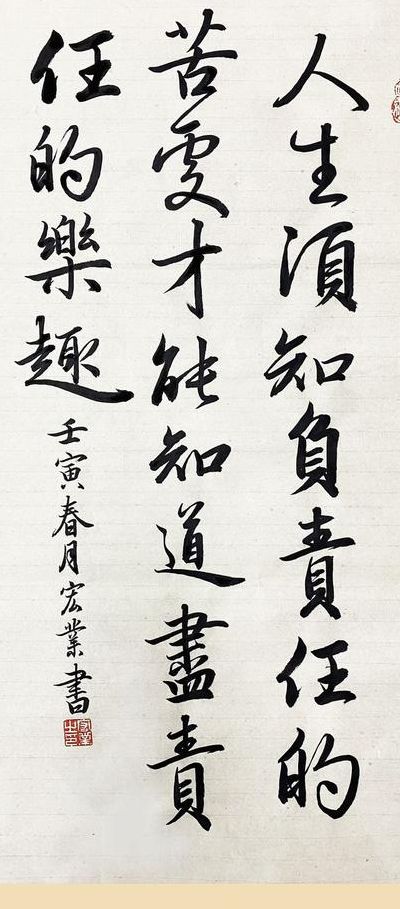 人生須知負責任的
苦處才能知道盡責
任的樂趣
壬寅春月宏業書